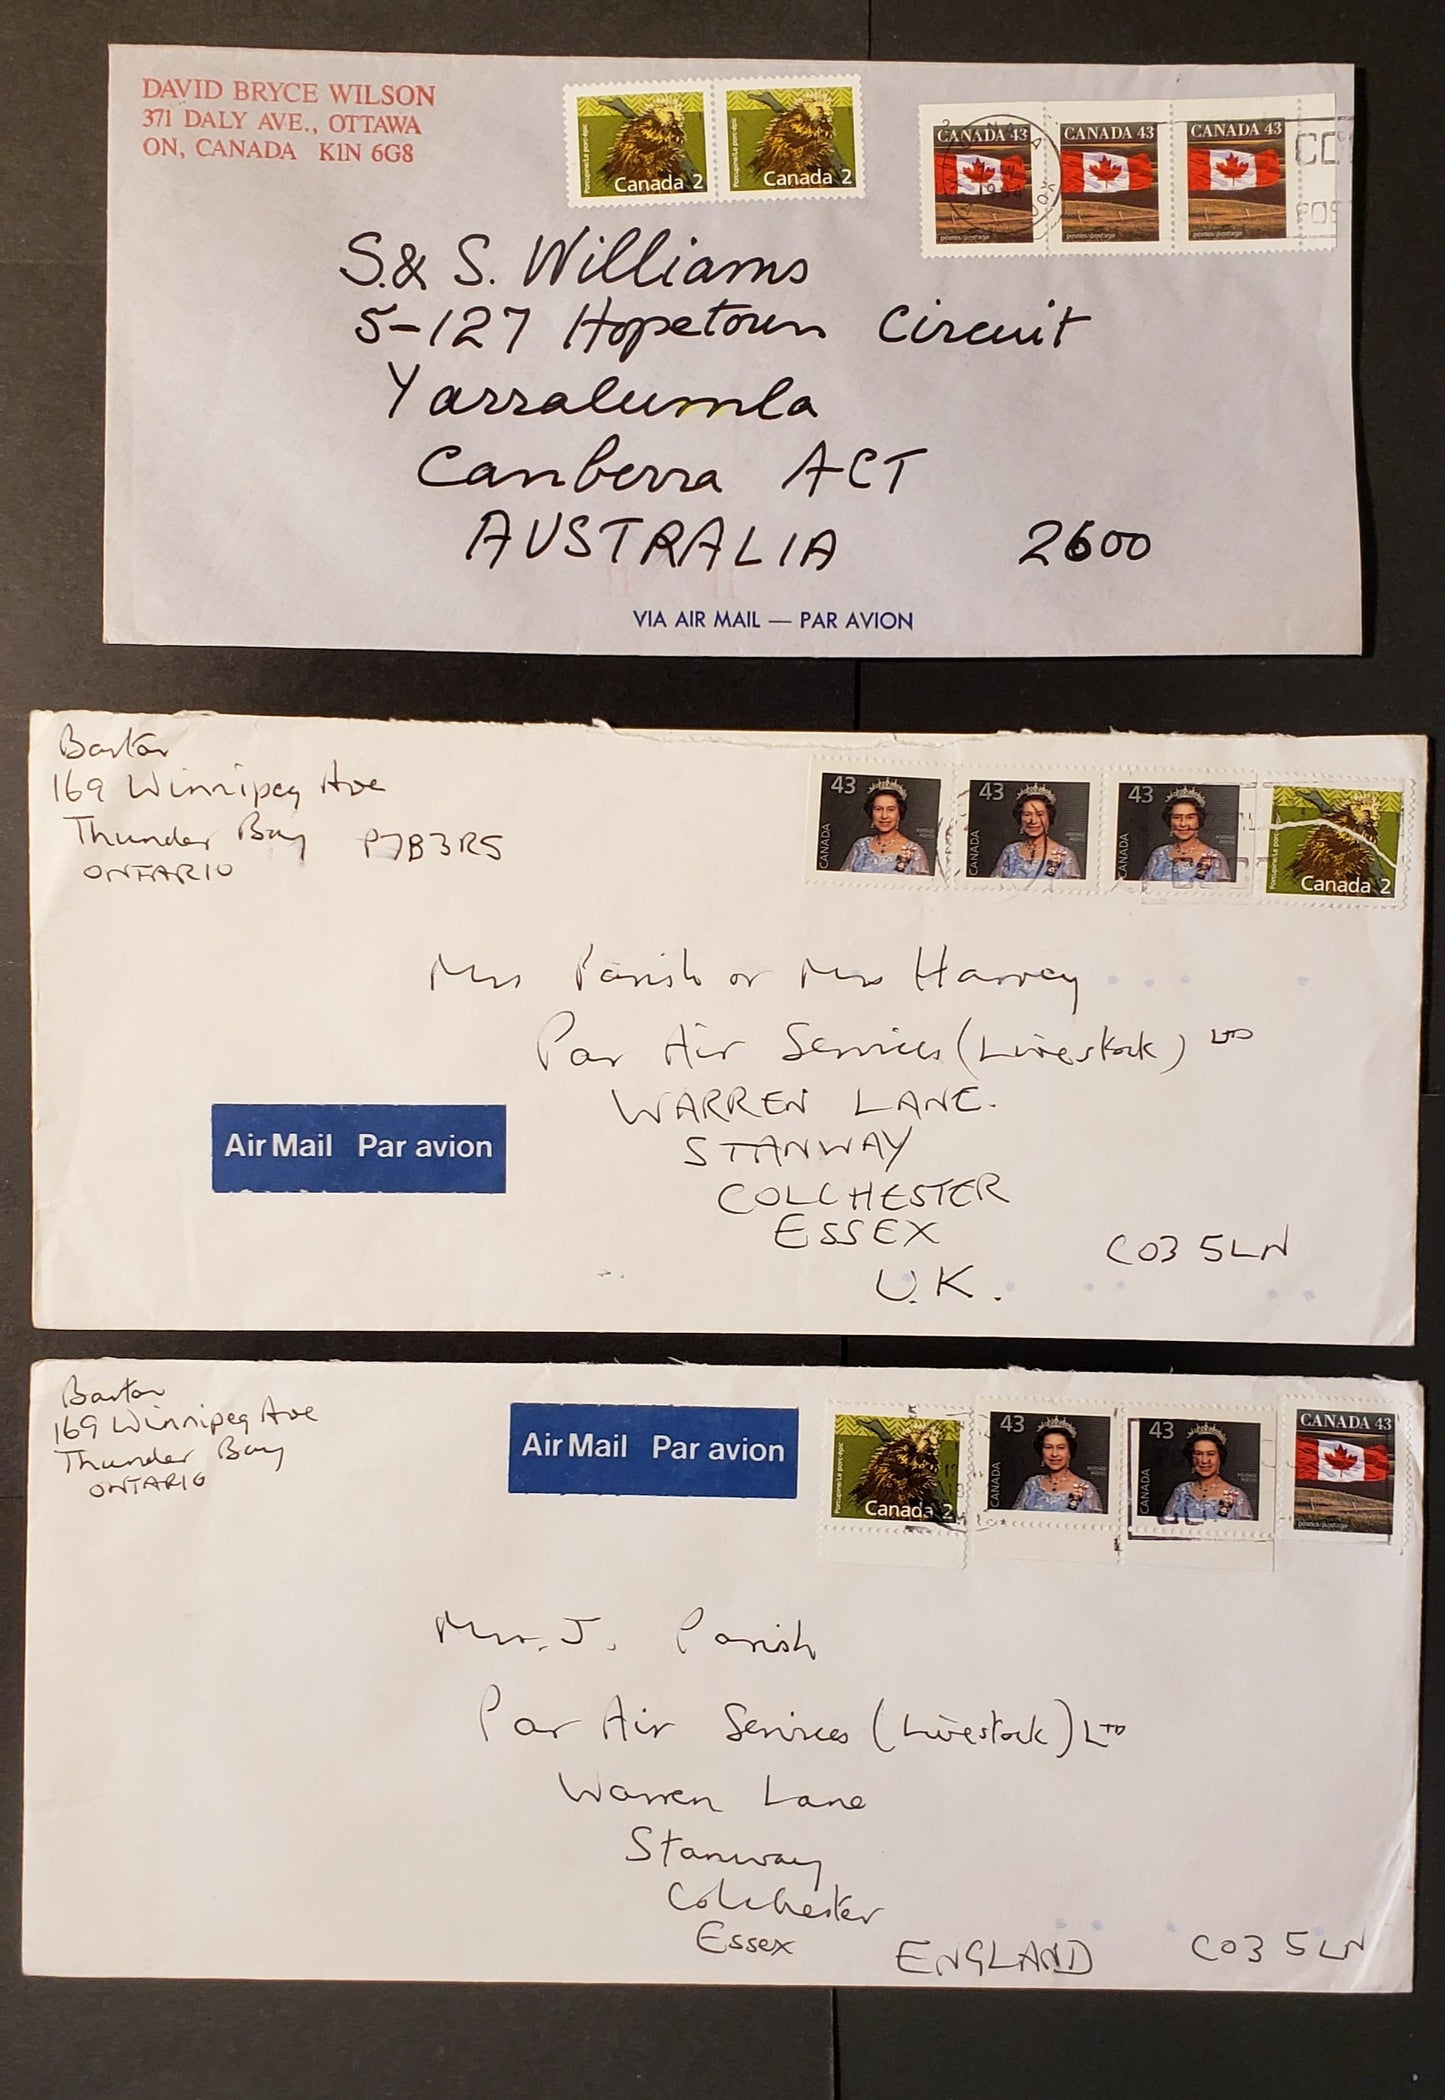 DAVID BRYCE WILSON
371 DALY AVE., OTTAWA
ON, CANADA K1N 6G8
Porcupine/Le porc-épic
Canada 2
Porcupine/Le porc-épic
Canada 2
CANADA 43
postes/postage
CANADA 43
postes/postage
CANADA 43
postes/postage
S. & S. Williams
5-127 Hopetoun Circuit
Yarralumla
Canberra ACT
AUSTRALIA 2600
VIA AIR MAIL — PAR AVION
Barton
169 Winnipeg Ave
Thunder Bay P7B3R5
ONTARIO
43
CANADA
43
CANADA
43
CANADA
Porcupine/Le porc-épic
Canada 2
Mrs Parish or Mrs Harvey
Par Air Services (Livestock) LTD
WARREN LANE.
STANWAY
COLCHESTER
ESSEX
U.K.
CO3 5LN
Air Mail Par avion
Barton
169 Winnipeg Ave
Thunder Bay
ONTARIO
Air Mail Par avion
Porcupine/Le porc-épic
Canada 2
43
CANADA
43
CANADA
CANADA 43
postes/postage
Mrs. J. Parish
Par Air Services (Livestock) LTD
Warren Lane
Stanway
Colchester
Essex
ENGLAND CO3 5LN